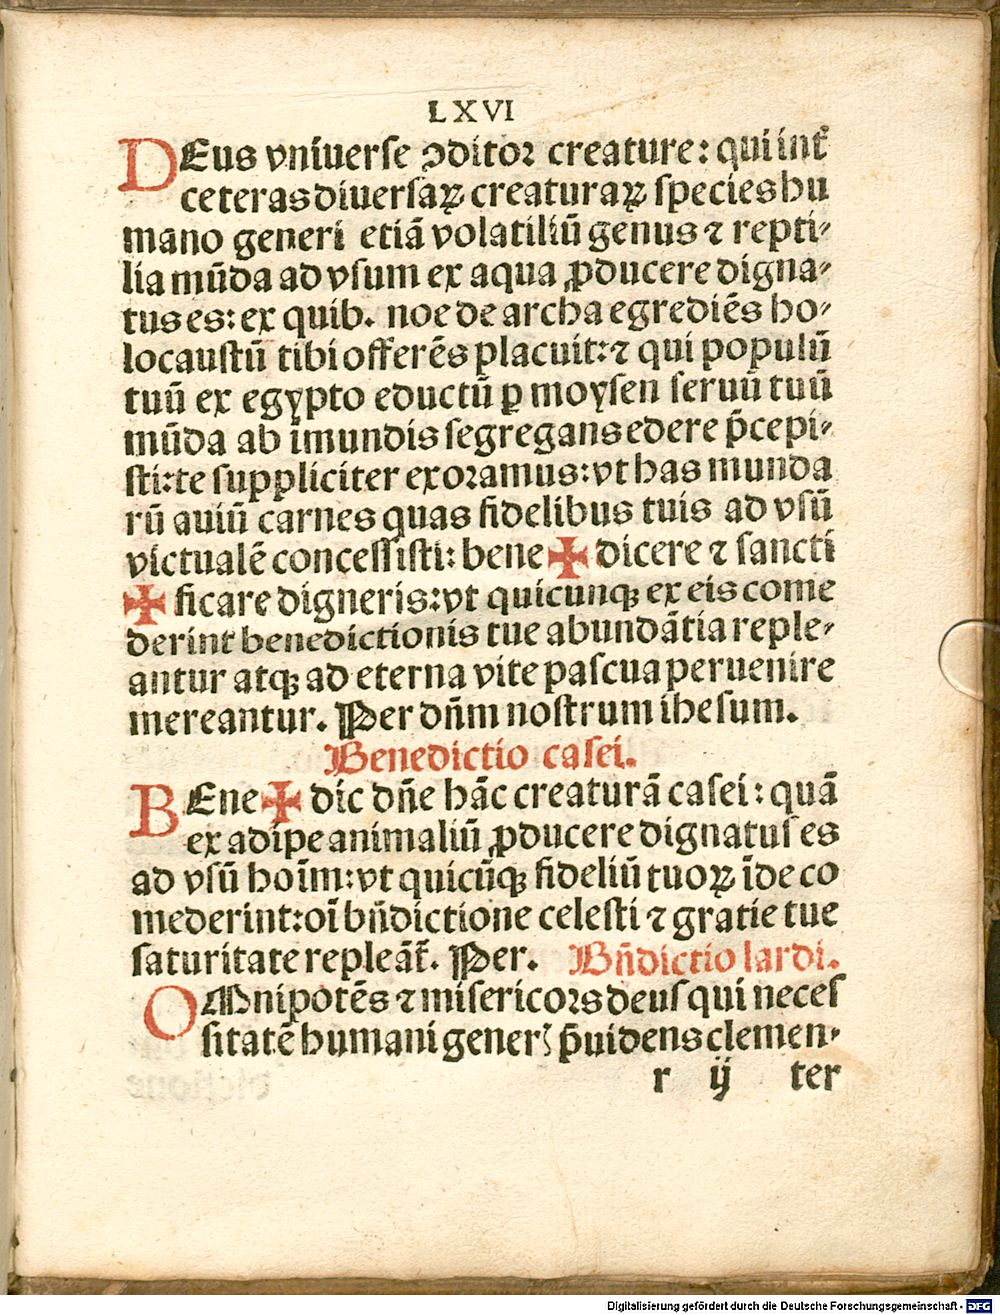 LXVI
DEus vniuerse ↄditor creature: qui int̃
ceteras diuersaꝝ creaturaꝝ species hu
mano generi etiã volatiliũ genus ⁊ repti⸗
lia mũda ad vsum ex aqua ꝓducere digna⸗
tus es: ex quib. noe de archa egrediẽs ho⸗
locaustũ tibi offerẽs placuit: ⁊ qui populũ
tuũ ex egypto eductũ ꝑ moysen seruũ tuũ
mũda ab ĩmundis segregans edere p̃cepi⸗
sti: te suppliciter exoramus: vt has munda
rũ auiũ carnes quas fidelibus tuis ad vsũ
victualẽ concessisti: bene ✠ dicere ⁊ sancti
✠ ficare digneris: vt quicunqꝫ ex eis come
derint benedictionis tue abundãtia reple⸗
antur atqꝫ ad eterna vite pascua peruenire
mereantur. Per dñm nostrum ihesum.
Benedictio casei.
BEne ✠ dic dñe hãc creaturã casei: quã
ex adipe animaliũ ꝓducere dignatus es
ad vsũ hoĩm: vt quicũqꝫ fideliũ tuoꝝ ĩde co
mederint: oĩ bñdictione celesti ⁊ gratie tue
saturitate repleãt̃. Per. Bñdictio lardi.
OMnipotẽs ⁊ misericors deus qui neces
sitatẽ humani generꝭ p̃uidens clemen⸗
r ij ter
Digitalisierung gefördert durch die Deutsche Forschungsgemeinschaft - DFG